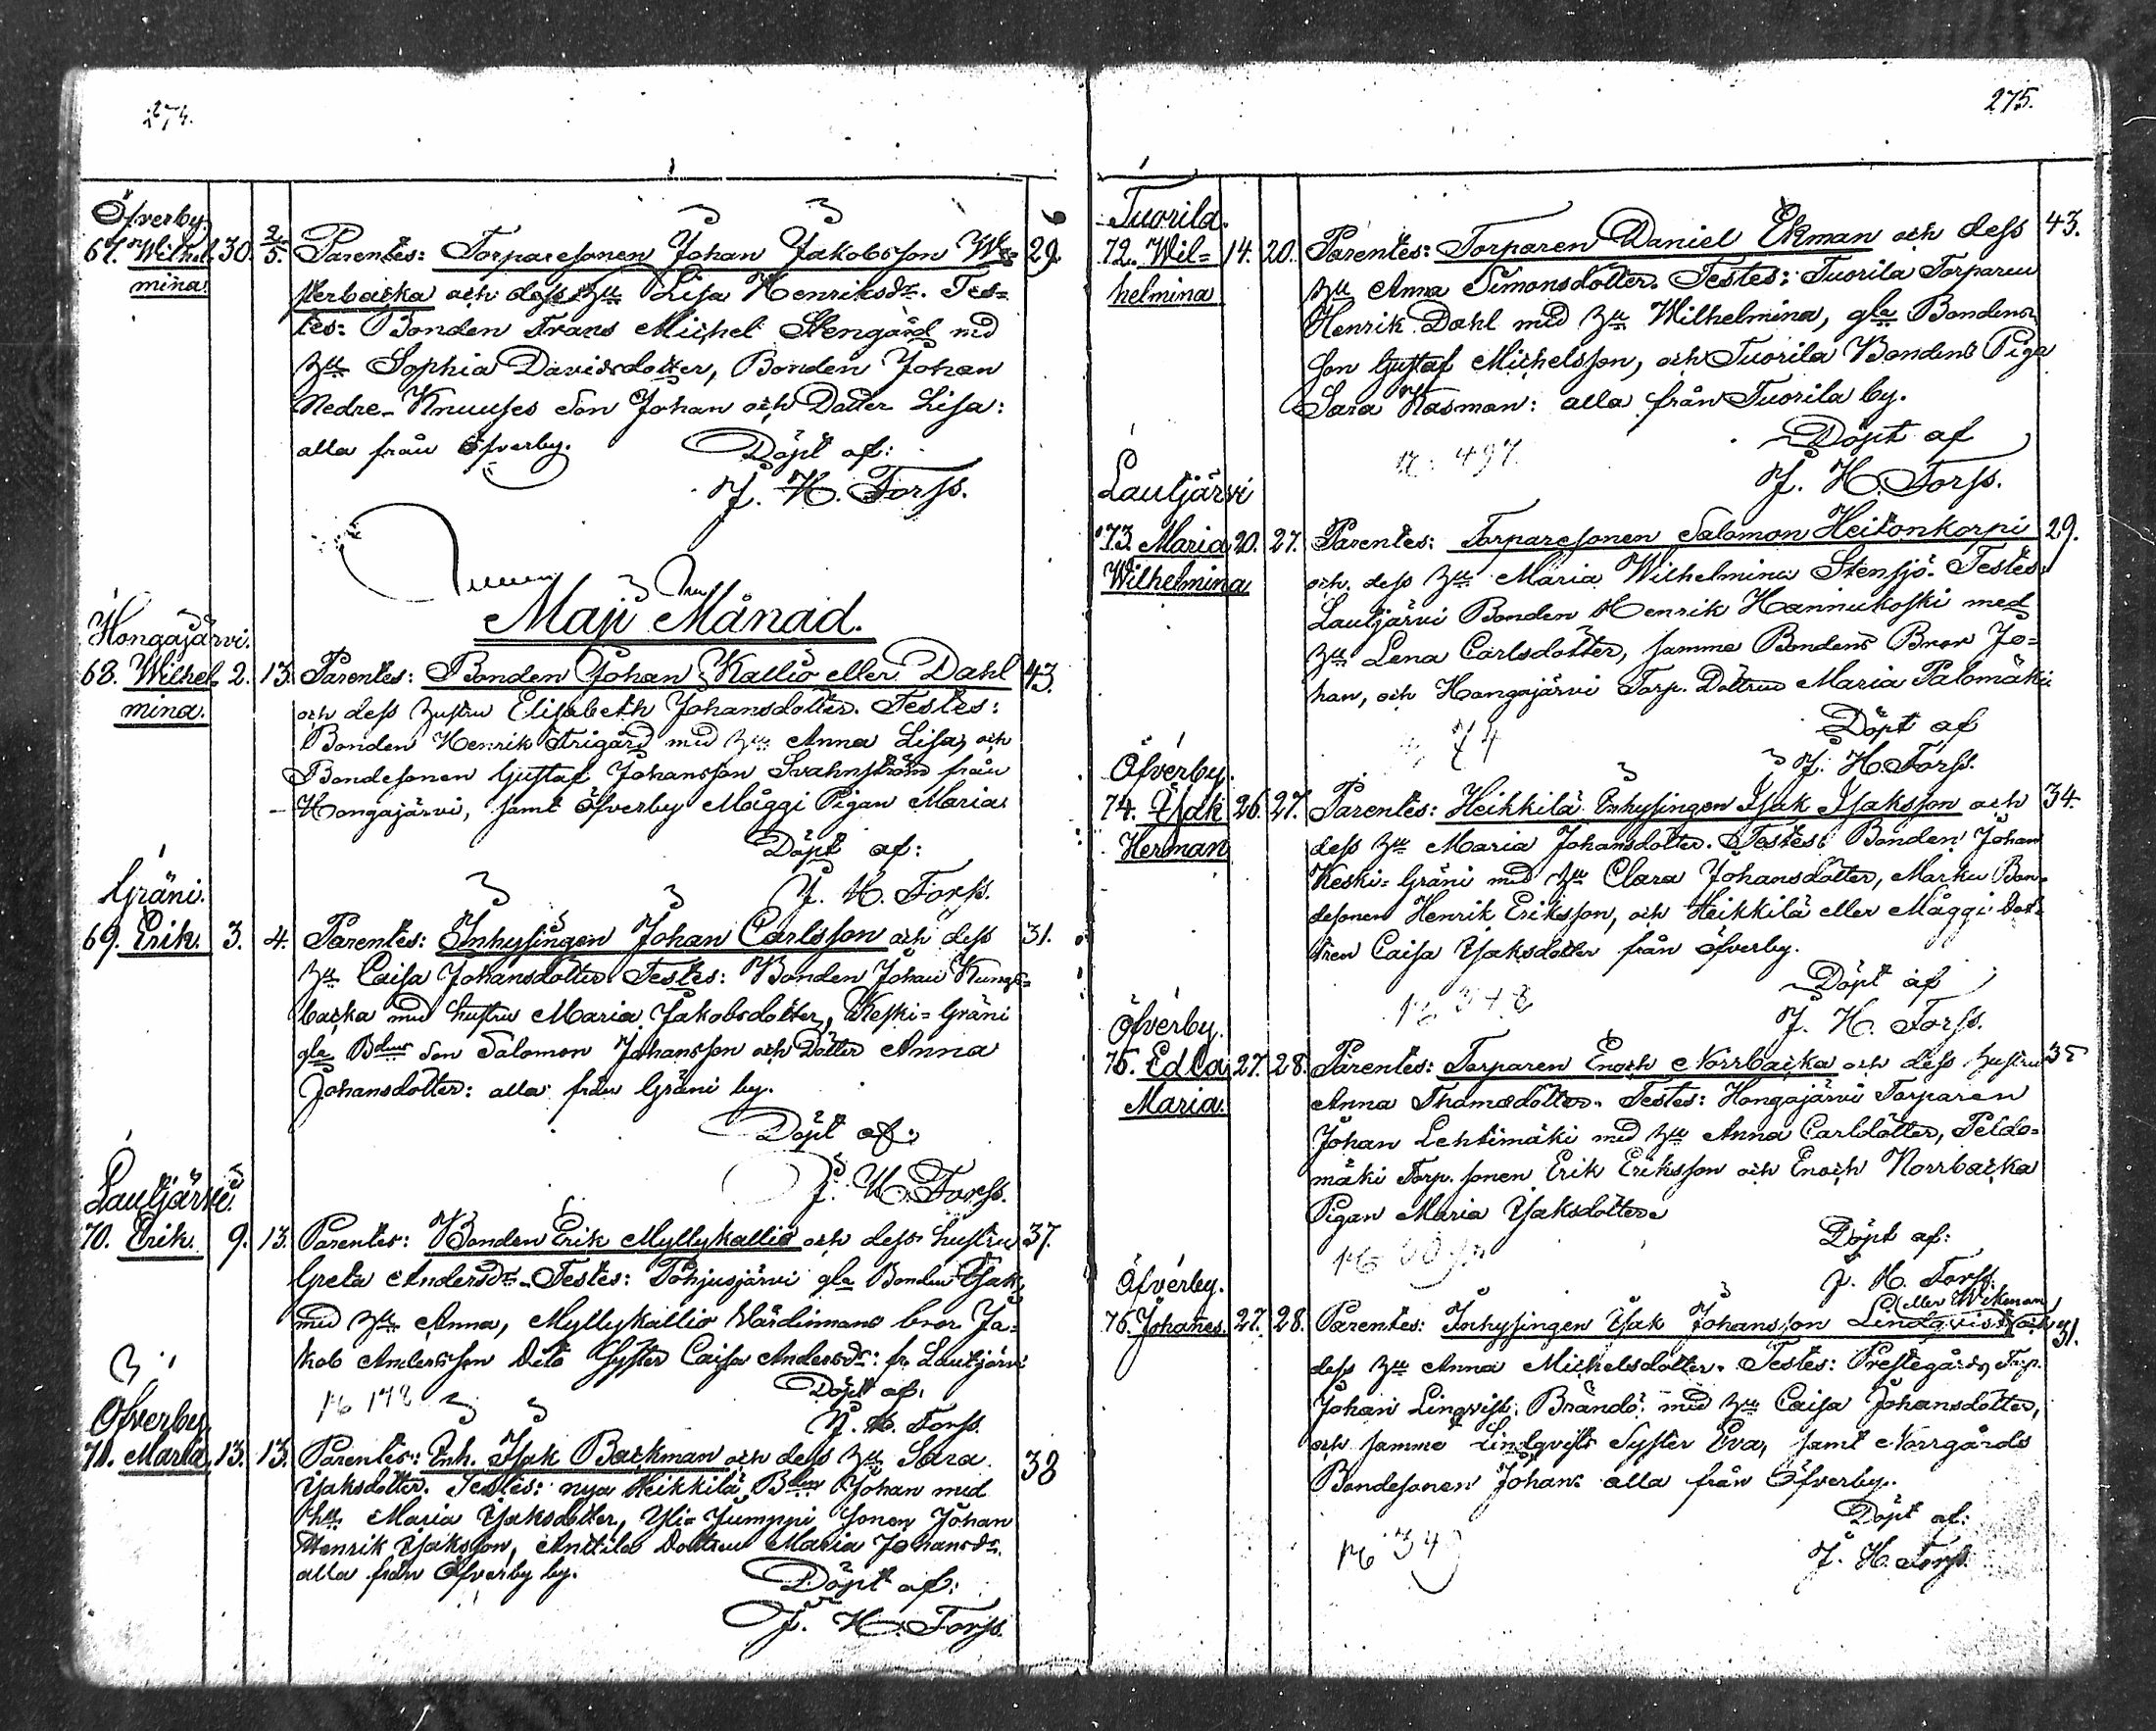 274.
Öfverby.
67. Wilhel- 30. 2/5. Parentes: Torparesonen Johan Jakobsson We= 29.
mina. sterbacka och dess hu Lisa Henriksdr. Tes=
tes: Bonden Frans Michel Stengård med
hu Sophia Davidsdotter, Bonden Johan
Nedre-Knuuses Son Johan och Dotter Lisa:
alla från Öfverby. Döpt af:
J. H. Forss.
Maji Månad.
Hongajärvi.
68. Wilhel- 2. 13. Parentes: Bonden Johan Kallio eller Dahl 43.
mina. och dess hustru Elisabeth Johansdotter. Testes:
Bonden Henrik Strigård med hu Anna Lisa, och
Bondesonen Gustaf Johansson Svahnström från
Hongajärvi, samt Öfverby Måggi Pigan Maria.
Döpt af:
J. H. Forss.
Gräni.
69. Erik. 3. 4. Parentes: Inhysingen Johan Carlsson och dess 31.
hu Caisa Johansdotter. Testes: Bonden Johan Kungs=
backa med hustru Maria Jakobsdotter, Keski=Gräni
gla Bdens Son Salomon Johansson och Dotter Anna
Johansdotter: alla från Gräni by.
Döpt af:
J. H. Forss.
Lautjärvi.
70. Erik. 9. 13. Parentes: Bonden Erik Myllykallio och dess hustru 37.
Greta Andersdr. Testes: Pohjusjärvi gla Bonden Isak
med hu Anna, Myllykallio Värdinnans bror Ja=
kob Andersson Dito Syster Caisa Andersdr: fr. Lautjärvi
Döpt af:
J. H. Forss.
Öfverby
71. Maria. 13. 13. Parentes: Inh. Isak Backman och dess hu Sara 38
Isaksdotter. Testes: nya Heikkilä Bden Johan med
hu Maria Isaksdotter, Yli=Jumppi Sonen Johan
Henrik Isaksson, Anttila Dottren Maria Johansdr.
alla från Öfverby by.
Döpt af:
J. H. Forss.
275.
Tuorila.
72. Wil= 14. 20. Parentes: Torparen Daniel Ekman och dess 43.
helmina hu Anna Simonsdotter. Testes: Tuorila Torparen
Henrik Dahl med hu Wilhelmina, gla Bondens
Son Gustaf Michelsson, och Tuorila Bondens Piga
Sara Kasman: alla från Tuorila by.
Döpt af
J. H. Forss.
Lautjärvi
73. Maria 20. 27. Parentes: Torparesonen Salomon Heitonkorpi 29.
Wilhelmina och dess hu Maria Wilhelmina Stensjö. Testes:
Lautjärvi Bonden Henrik Hannukoski med
hu Lena Carlsdotter, samme Bondens Bror Jo=
han, och Hongajärvi Torp. Dottren Maria Palomäki
74 Döpt af
J. H. Forss.
Öfverby.
74. Isak 26. 27. Parentes: Heikkilä Inhysingen Isak Isaksson och 34.
Herman dess hu Maria Johansdotter. Testes: Bonden Johan
Keski=Gräni med hu Clara Johansdotter, Marku Bon=
desonen Henrik Eriksson, och Heikkilä eller Måggi Dot=
tren Caisa Isaksdotter från Öfverby.
Döpt af
J. H. Forss.
Öfverby.
75. Edla 27. 28. Parentes: Torparen Enoch Norrbacka och dess hustru
Maria. Anna Thomasdotter. Testes: Hongajärvi Torparen
Johan Lehtimäki med hu Anna Carlsdotter, Peldo=
mäki Torp. sonen Erik Eriksson och Enoch Norrbacka
Pigan Maria Isaksdotter.
Döpt af:
J. H. Forss.
Öfverby.
eller Wikman
76. Johanes. 27. 28. Parentes: Inhysingen Isak Johansson Lindqvist och 31.
dess hu Anna Michelsdotter. Testes: Prestegårds Torp.
Johan Linqvist Brändö med hu Caisa Johansdotter,
och samme Lindqvists Syster Eva, samt Norrgårds
Bondesonen Johan: alla från Öfverby.
Döpt af:
J. H. Forss.